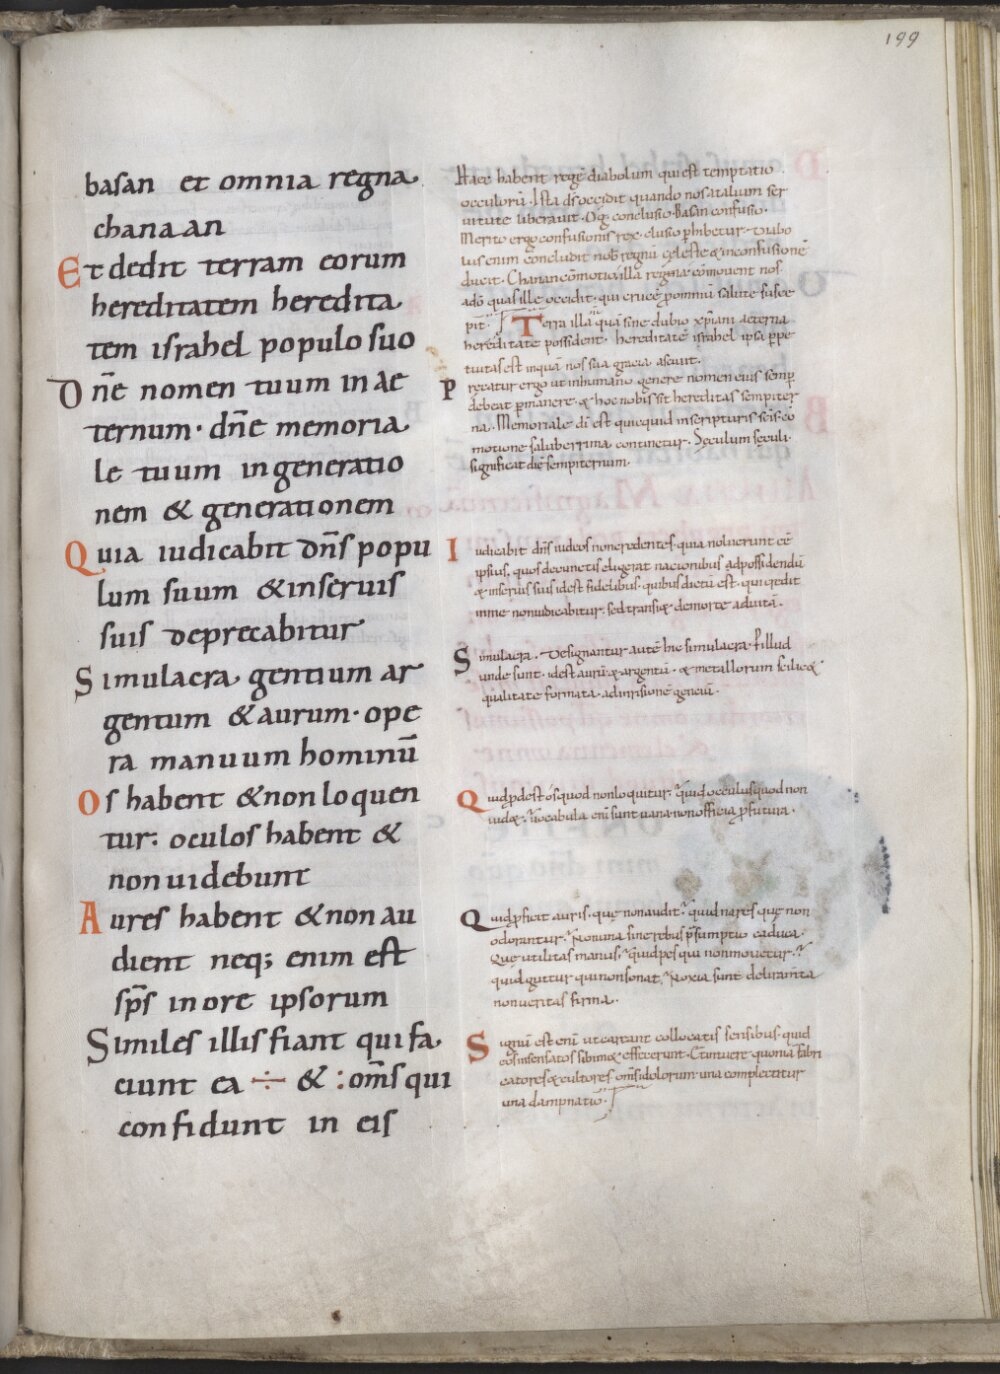 199
basan et omnia regna
chanaan
Et dedit terram eorum
hereditatem heredita
tem israhel populo suo
Dñe nomen tuum in ae
ternum · dñe memoria
le tuum in generatio
nem & generationem
Quia iudicabit dñs popu
lum suum & in seruis
suis deprecabitur
Simulacra gentium ar
gentum & aurum · ope
ra manuum hominū
Os habent & non loquen
tur: oculos habent &
non uidebunt
Aures habent & non au
dient neq; enim est
sp̄s in ore ipsorum
Similes illis fiant qui fa
ciunt ea ÷ & : om̄s qui
confidunt in eis
Haec habent regē diabolum qui est temptatio
occulorū · Ista ds̄ occidit quando nos a talium ser
uitute liberauit · Og conclusio · Basan confusio ·
Merito ergo confusionis rex · clusio phibetur · Diabo
lus enim concludit nob regnū celeste & in confusionē
ducit · Chanan cōmotio illa regna cōmouent nos
ad quas ille occidit · qui crucē p omniū salute susce
pit · Terra illa quā sine dubio xp̄iani aeterna
hereditate possident · hereditate israhel ipsa ppe
tuitas est inquā nos sua gracia asciuit ·
Precatur ergo ut in humano genere nomen eius semp
debeat pmanere · & hoc nobis sit hereditas sempiter
na · Memoriale di est quicquid in scripturis scis · cō
motione saluberrima continetur · Seculum seculi ·
significat diē sempiternum ·
Iudicabit dn̄s iudeos non credentes · quia noluerunt cē
ipsius · quos de cunctis elegerat nacionibus ad possidendū
& in seruis suis idest fidelibus · quibus dictū est · qui credit
in me non iudicabitur · sed transiet de morte ad uitā ·
Simulacra · Designantur autē hic simulacra p illud
unde sunt · idest aurū & argentū · & metallorum
qualitate formata · ad inrisionē genciū ·
Quid pdest os quod non loquitur · quid occulus quod non
uidet · uocabula eni sunt uana · non officia pfutura ·
Quid pficit auris · que non audit · quid nares que non
odorantur · Nomina sine rebus psumptio caduca ·
Que utilitas manus · quid pes qui non mouetur ·
quid guttur qui non sonat · Noxia sunt deliramta
non ueritas firma ·
Signū est enī ut careant collocatis sensibus · quid
eos insensatos sibimet effecerunt · Cōtinuere quoniā fabri
catores & cultores om̄s idolorum · una complectitur
una dampnatio ·